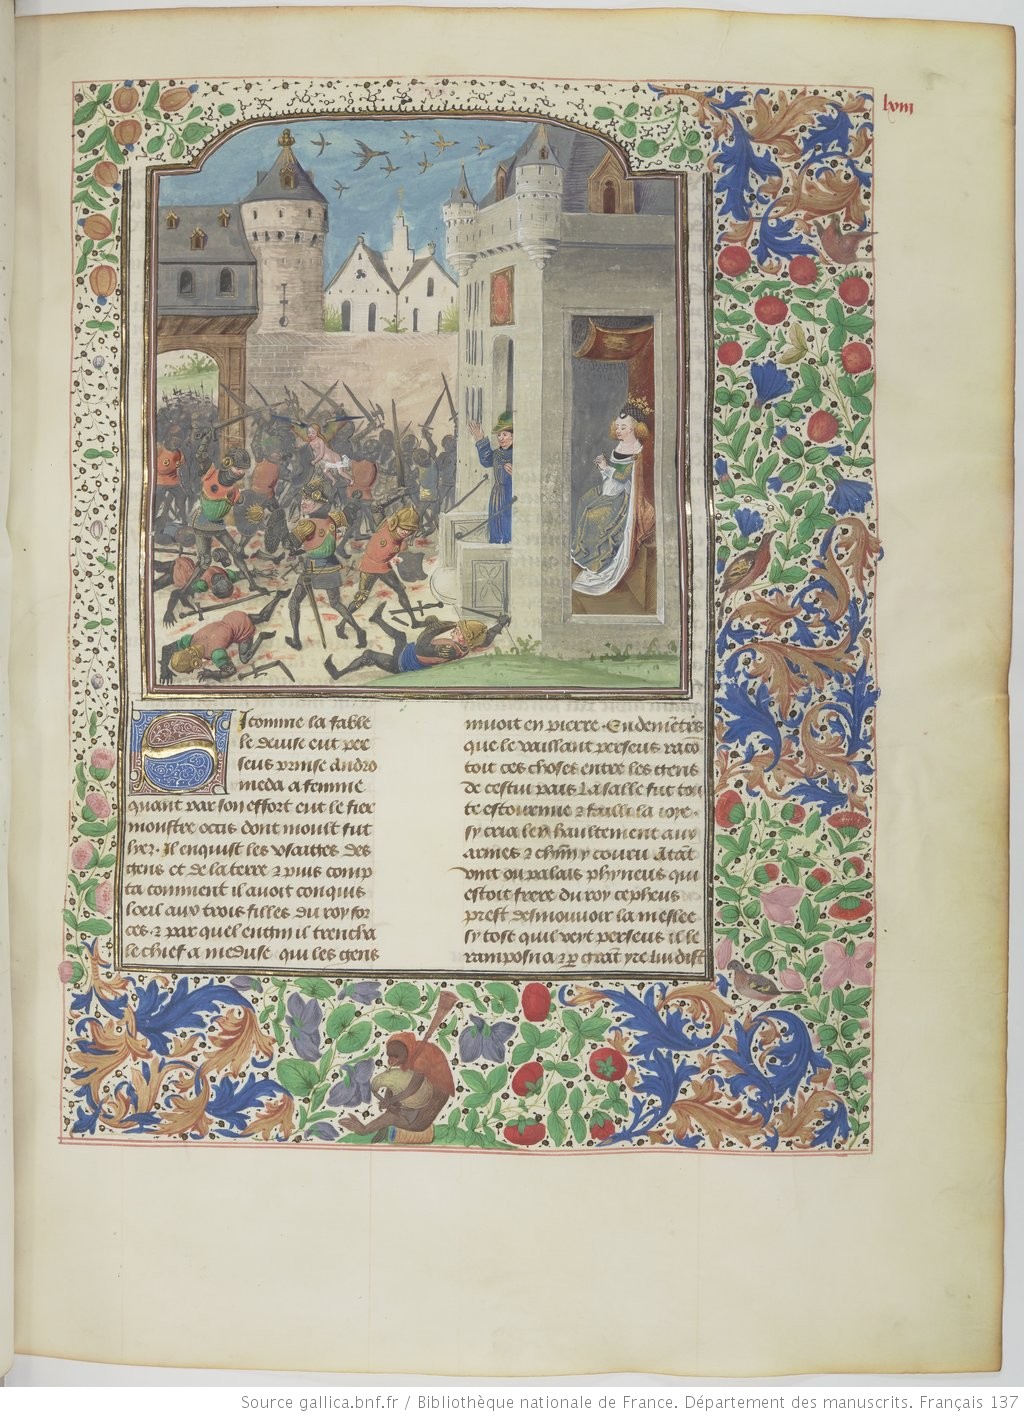 lviii
Sicomme la fable
le devise eut per
seus prinse andro
meda a femme
quant par son effort eut le fier
monstre occis dont moult fut
fyer. Il enquist les usaiges des
gens et de la terre ⁊ puis comp
ta comment il avoit conquis
loeil aux trois filles du roy for
ces. ⁊ par quel enttin il trencha
le chief a meduse. qui les gens
muoit en pierre. Endemetres
que le vaillant perseus raco
toit ces choses entre les gens
de cestui pais La salle fut tou
te estourmie ⁊ failli la ioye.
sy cria len haultement aux
armes ⁊ chūn y couru Atāt
vint ou palais phyneus qui
estoit frere du roy cepheus
prest desmouvoir la meslee
sy tost quil veyt perseus il le
ramposna ⁊ p grāt yre luy dist
Source gallica.bnf.fr / Bibliothèque nationale de France. Département des manuscrits. Français 137